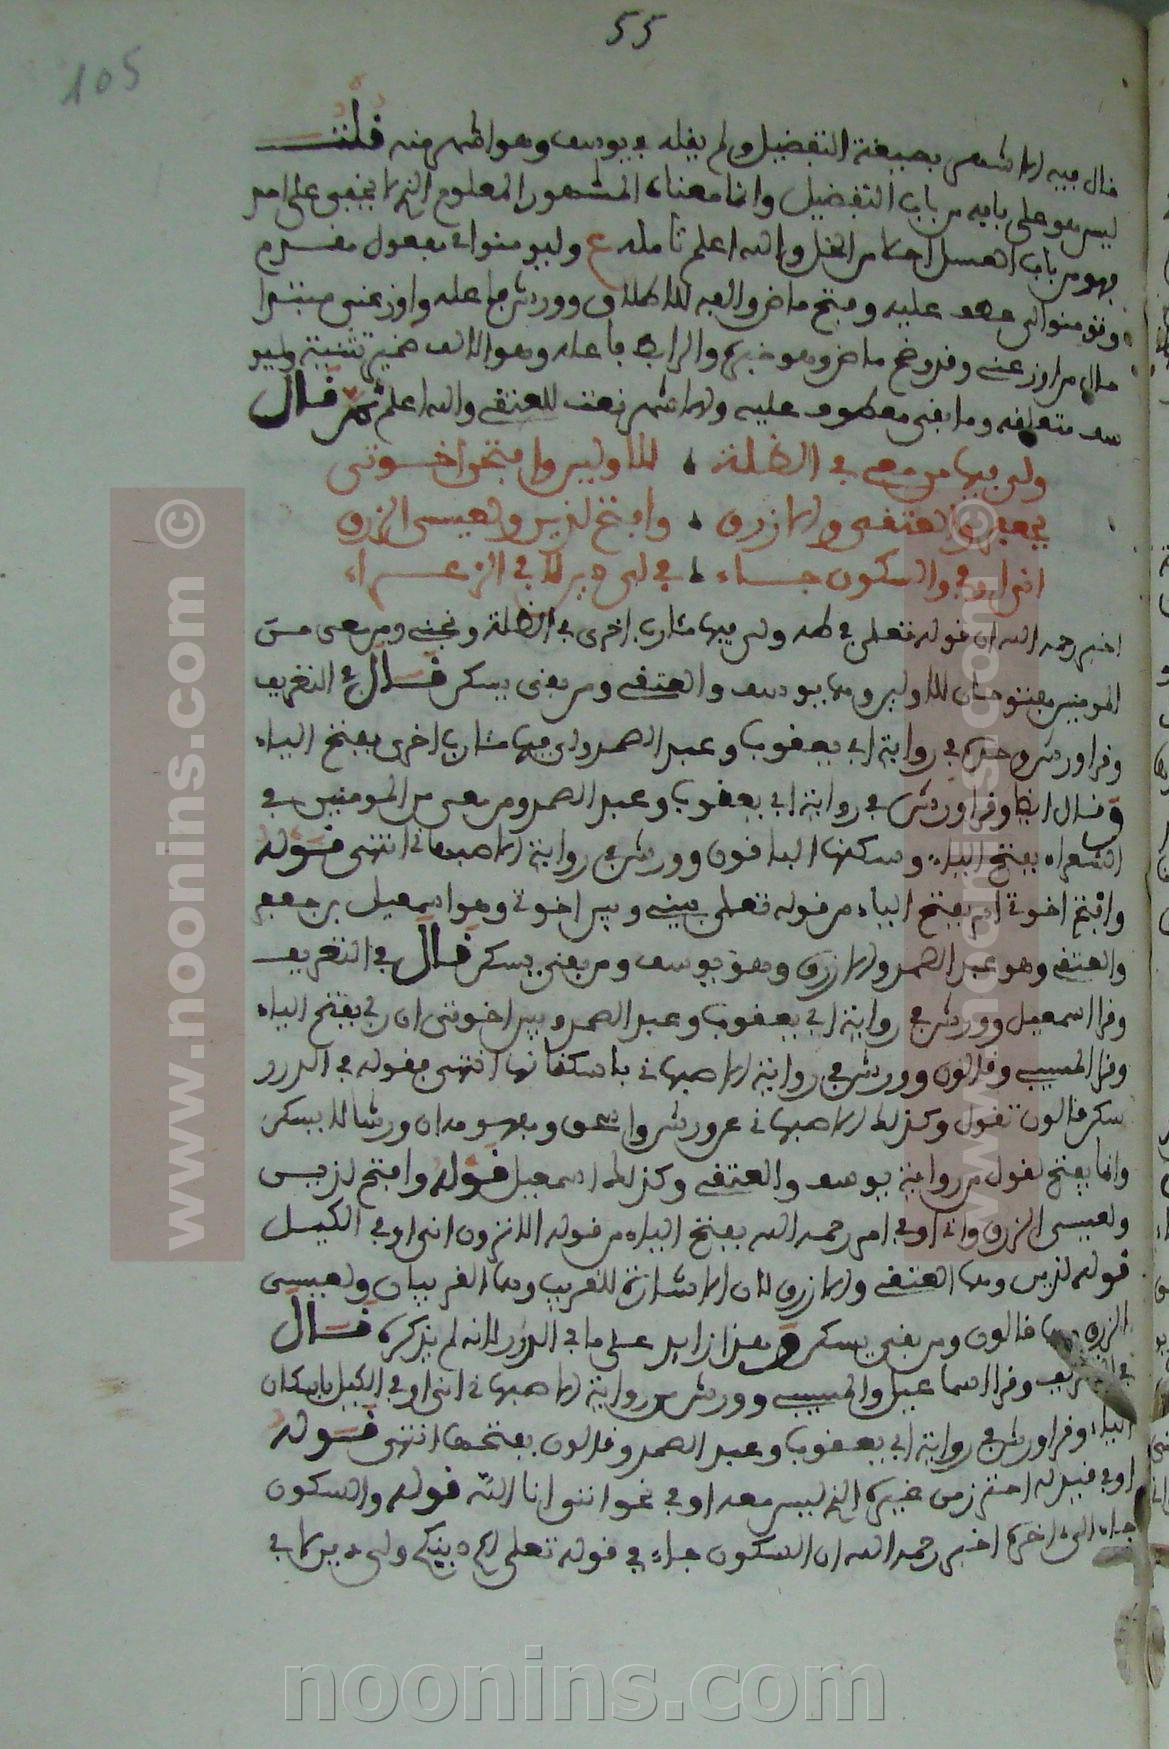 55
105
قال فيه الاشهر بصيغة التفضيل ولم يقله في يوسف وهو اظهر منه قلت
ليس هو على بابه من باب التفضيل وانما معناه المشهور المعلوم الذي لا يخفى على احد
فهو من باب العسل احلا من الخل والله اعلم تأمله ع وليومنوا بي مفعول مقدم
وتومنوا لي عطف عليه وفتح ماض والفه للاطلاق وورش فاعله واوزعني مبتدا
وقد وضح ماض وهو خبره والرابط فاعله وهو الالف ضمير تثنية
متعلقه وما بقي معطوف عليه والاشهر نعت للعتقي والله اعلم ثم قال
ولي فيها من معي في الظلة لالاولين وافتحن اخوتي
والعتقي والازرق وافتح لذين ولعيسى الزرق
اني اوفي والسكون جاء في لي دين لا في الزهراء
اخبر رحمه الله ان قوله تعلى في طه ولي فيها مئارب اخرى في الظلة ونجني ومن معي من
المومنين مفتوحتان للاولين وهما يوسف والعتقي ومن بقي يسكن قال في التعريف
وقرا ورش وحده في رواية ابي يعقوب وعبد الصمد ولي فيها مئارب اخرى بفتح الياء
وقال ايضا وقرا ورش في رواية ابي يعقوب وعبد الصمد ومن معي من المومنين في
الشعراء بفتح الياء وسكنها الباقون وورش في رواية الاصبهاني انتهى قوله
وافتح اخوتي اي بفتح الياء من قوله تعلى بيني وبين اخوتي وهو اسمعيل بن جعفر
والعتقي وهو عبد الصمد والازرق وهو يوسف ومن بقي يسكن قال في التعريف
وقرا اسمعيل وورش في رواية ابي يعقوب وعبد الصمد وبين اخوتي ان ربي بفتح الياء
وقرا المسيبي وقالون وورش في رواية الاصبهاني باسكانها انتهى فقوله في الدرر
سكن قالون تقول وكذلك الاصبهاني عن ورش واسحق ومفهومه ان ورشا لا يسكن
وانما يفتح نقول من رواية يوسف والعتقي وكذلك اسمعيل قوله وافتح لذين
ولعيسى الزرق واني اوفي امر رحمه الله بفتح الياء من قوله الا ترون اني اوفي الكيل
قوله لذين وهما العتقي والازرق لان الاشارة للقريب وهما القريبان ولعيسى
الزرق وهما قالون ومن بقي يسكن وهذا زايد على ما في الدرر لانه لم يذكره قال
في التعريف وقرا اسماعيل والمسيبي وورش من رواية الاصبهاني اني اوفي الكيل باسكان
الياء وقرا ورش في رواية ابي يعقوب وعبد الصمد وقالون بفتحها انتهى قوله
اوفي قيد له احترز من غيره الذي ليس معه اوفي نحو انني انا الله قوله والسكون
جاء الى اخره اخبر رحمه الله ان السكون جاء في قوله تعلى لكم دينكم ولي دين لا في
www.noonins.com ©
www.noonins.com ©
noonins.com